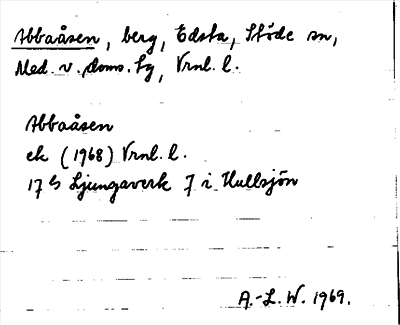 Abbaåsen, berg, Edsta, Stöde sn,
Med. v. doms. tg, Vrnl. l.
Abbaåsen
ek (1968) Vrnl. l.
17 b Ljungaverk 7 i Hullsjön
A.-L. W. 1969.